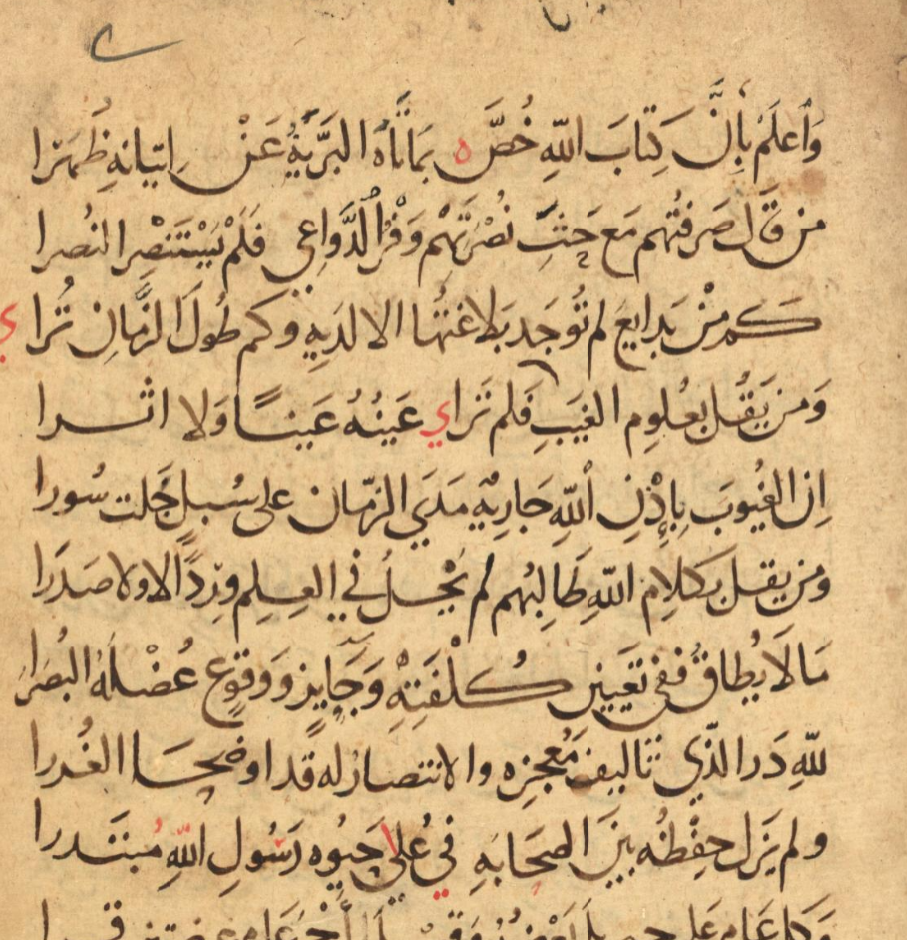 وَاعلَمْ بِاَنَّ كِتَابَ اللّهِ خُصَّ ه بمَا تَاهَ البَرَّيةُ عَنْ اِتيانهِ ظُهَرَا
من قَالَ صَرفتُهم مَع حَثِّ نُصْرَتَهِمْ وَفْرُ الدَّواعِي فَلَمْ يَسْتَنْصِرِ النُصرا
كَم مِنْ بَدايعَ لم تُوجَد بَلاغتُها الا لديهِ وكم طُولَ الزَّمانِ تُرا ي
وَمن يَقُل بعُلومِ الغيَبِ فَلم تَراي عَينُهُ عَينًا وَلا اثرا
اِن الغيُوبَ بِاِذْنِ اللّهِ جَاريةٌ مَدَي الزمّان على سُبلٍ جَلت سُورا
ومن يقل بكلامِ اللّهِ طَالِبُهم لم يَحلُ في العِلمِ وِردًا لا ولا صَدَرا
مَا لَا يُطاقُ ففي تعَيَينِ كُلْفَتِهِ وَجَايزٍ وَوقوعٍ عُضْلَهُ البُصَرا
للّهِ دَر الذّي تاليف مُعجزِه والانتصار له قد اوضَحَا الغُررا
ولم يَزَل حِفِظُه بينَ الصحَابهِ في عُلي حَيوه رَسُولِ اللّهِ مُبتَدرا